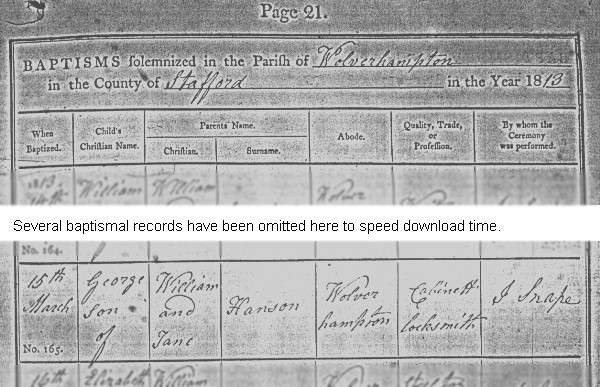 Page 21.
BAPTISMS solemnized in the Parish of Wolverhampton
in the County of Stafford in the Year 1813
When Baptized.
Child's Christian Name.
Parents Name.
Christian.
Surname.
Abode.
Quality, Trade, or Profession.
By whom the Ceremony was performed.
1813
14th
William
William
Wolver
Several baptismal records have been omitted here to speed download time.
No. 164.
15th March
George son of
William and Jane
Hanson
Wolver hampton
Cabinett locksmith
J Snape
No. 165.
16th
Elizabeth
William
Wolver